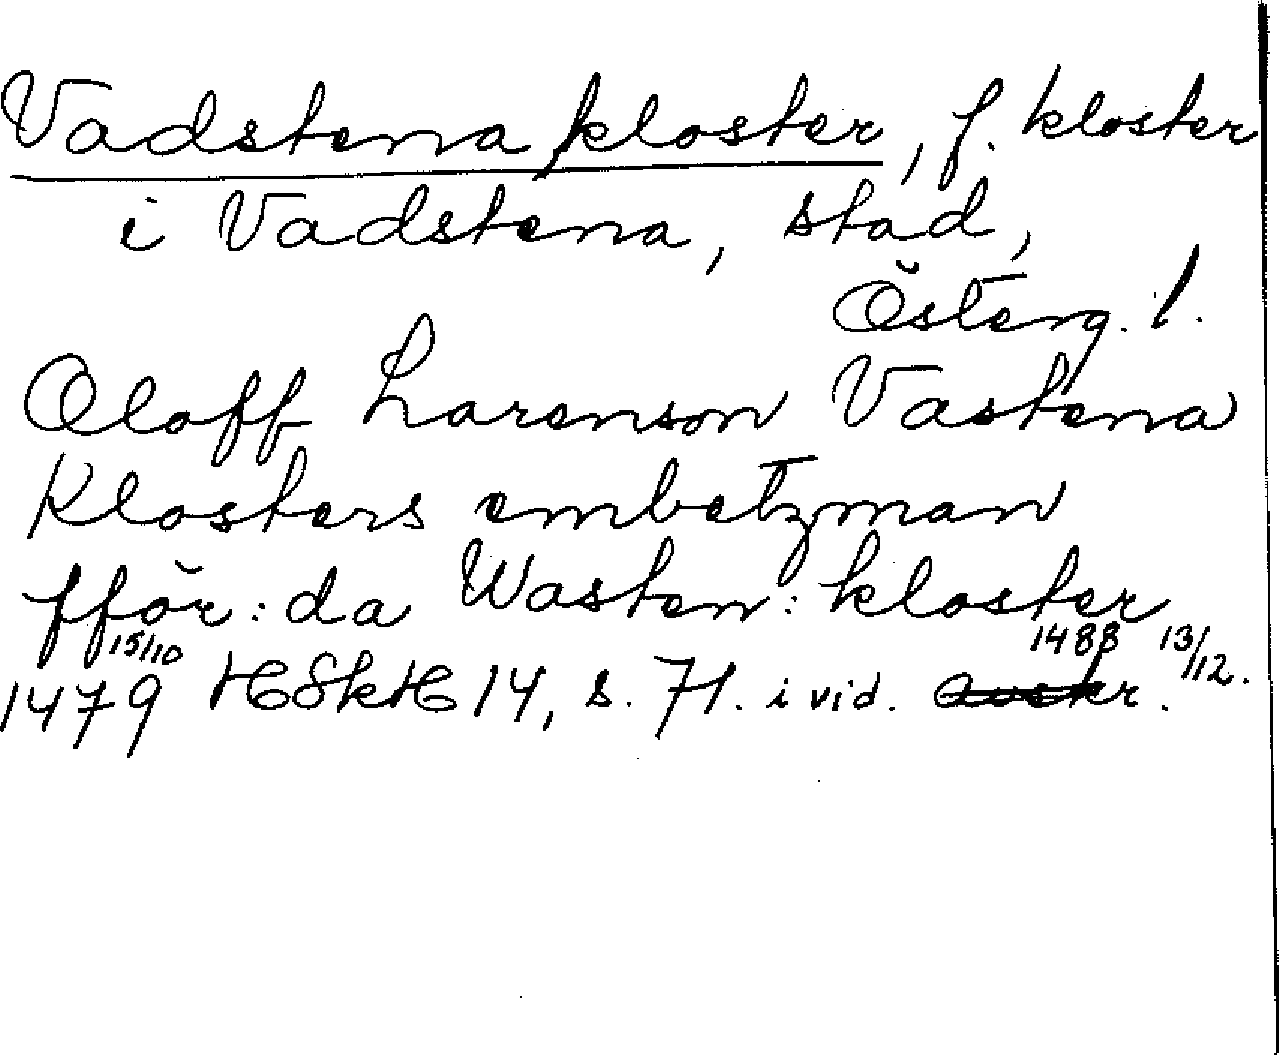 Vadstena kloster, f. kloster
i Vadstena, stad,
Österg. l.
Oloff Larenson Vastena
Klosters embetzman
fför: da Wasten: kloster
15/10 1488 13/12.
1479 HSkH 14, s. 71. i vid.